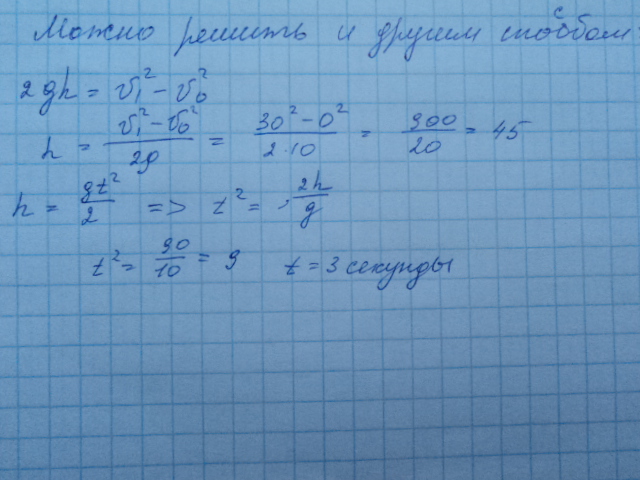 Можно решить и другим способом
2gh = v₁² − v₀²
h = (v₁² − v₀²)/2g = (30² − 0²)/(2·10) = 900/20 = 45
h = gt²/2 => t² = 2h/g
t² = 90/10 = 9 t = 3 секунды